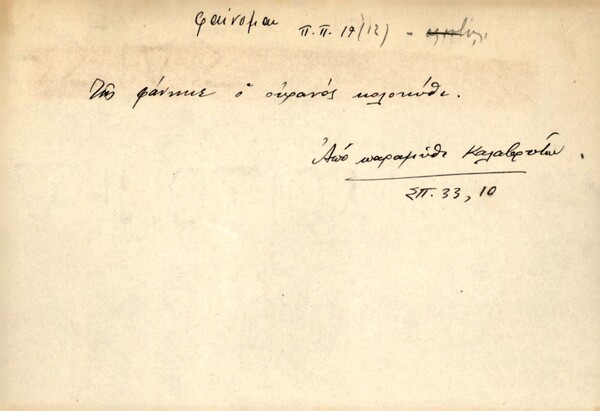 φαίνομαι Π.Π. 19 (12) -
Τῆς φάνηκε ὁ οὐρανός κολοκύθι.
Ἀπό παραμύθι Καλαβρύτων.
ΣΠ. 33, 10